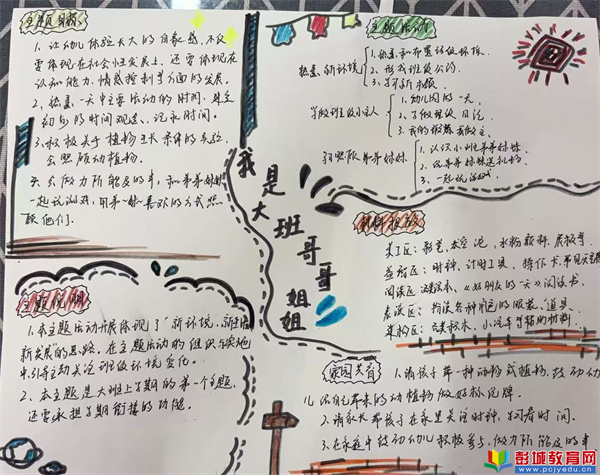 主题目标
1、让幼儿体验长大的自豪感,不仅
要体现在社会性发展上,还要体现在
认知能力、情感控制等方面的发展。
2、熟悉一天中主要活动的时间,建立
初步的时间观念、记录时间。
3、积极关于植物生长条件的实验,
会照顾动植物。
4、会做力所能及的事,和弟弟妹妹
一起玩游戏,用弟弟妹妹喜欢的方式照
顾他们。
主题说明
1、本主题活动开展体现了"新环境、新生活
新发展"的思路,在主题活动的组织与实施
中,引导主动关注班级环境变化。
2、本主题是大班上学期的第一个主题,
还要承担学期衔接的功能。
我是大班哥哥姐姐
主题活动
熟悉新环境
1、熟悉和布置班级环境。
2、形成班级公约。
3、了解新本领
争做班级小主人
1、幼儿园的一天
2、了解班级日
3、我的
学习照顾弟弟妹妹
1、认识小班弟弟妹妹
2、给弟弟妹妹送礼物
3、一起玩游戏
材料投放
美工区:彩笔、太空泥、水粉颜料
益智区:时钟、计时工具
阅读区
表演区:扮演各种角色的服装、道具
建构区
家园共育
1、请孩子带一种动物或植物,
儿做好标记牌
2、请家长带孩子在家里关注时钟,学习看时间。
3、在家庭中鼓励幼儿积极参与,做力所能及的事
彭城教育网
www.pcjyedu.cn